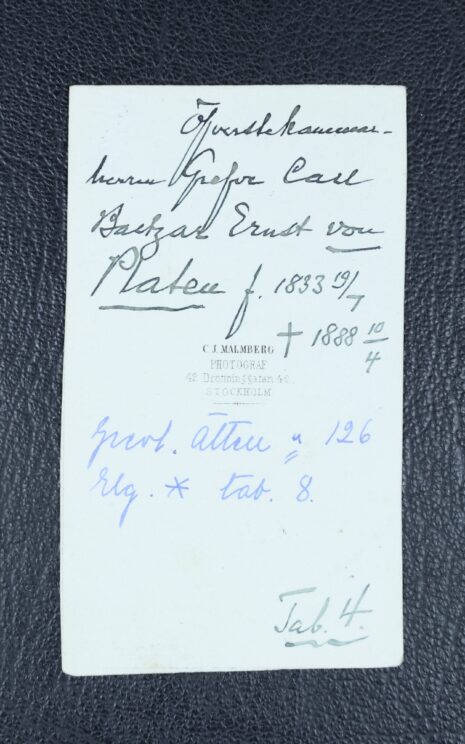 Öfverstekammar-
herren Grefve Carl
Baltzar Ernst von
Platen f. 1833 19/7
† 1888 10/4
C. J. MALMBERG
PHOTOGRAF
42 Drottninggatan 42
STOCKHOLM
Grevl. Ätten n 126
Elg. * tab. 8.
Tab. 4.